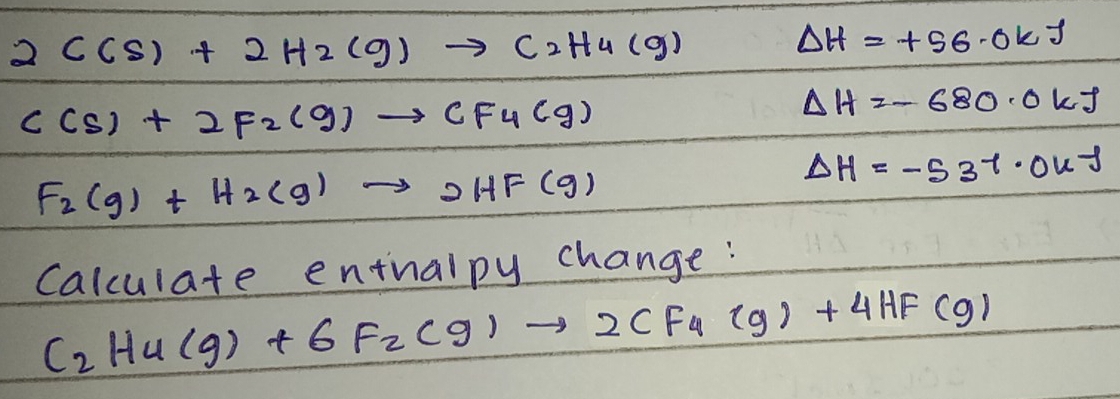 2 C(s) + 2H2(g) → C2H4(g) ΔH = +56.0kJ
C(s) + 2F2(g) → CF4(g) ΔH = - 680.0 kJ
F2(g) + H2(g) → 2HF(g) ΔH = -537.0kJ
Calculate enthalpy change:
C2H4(g) + 6F2(g) → 2CF4(g) + 4HF(g)